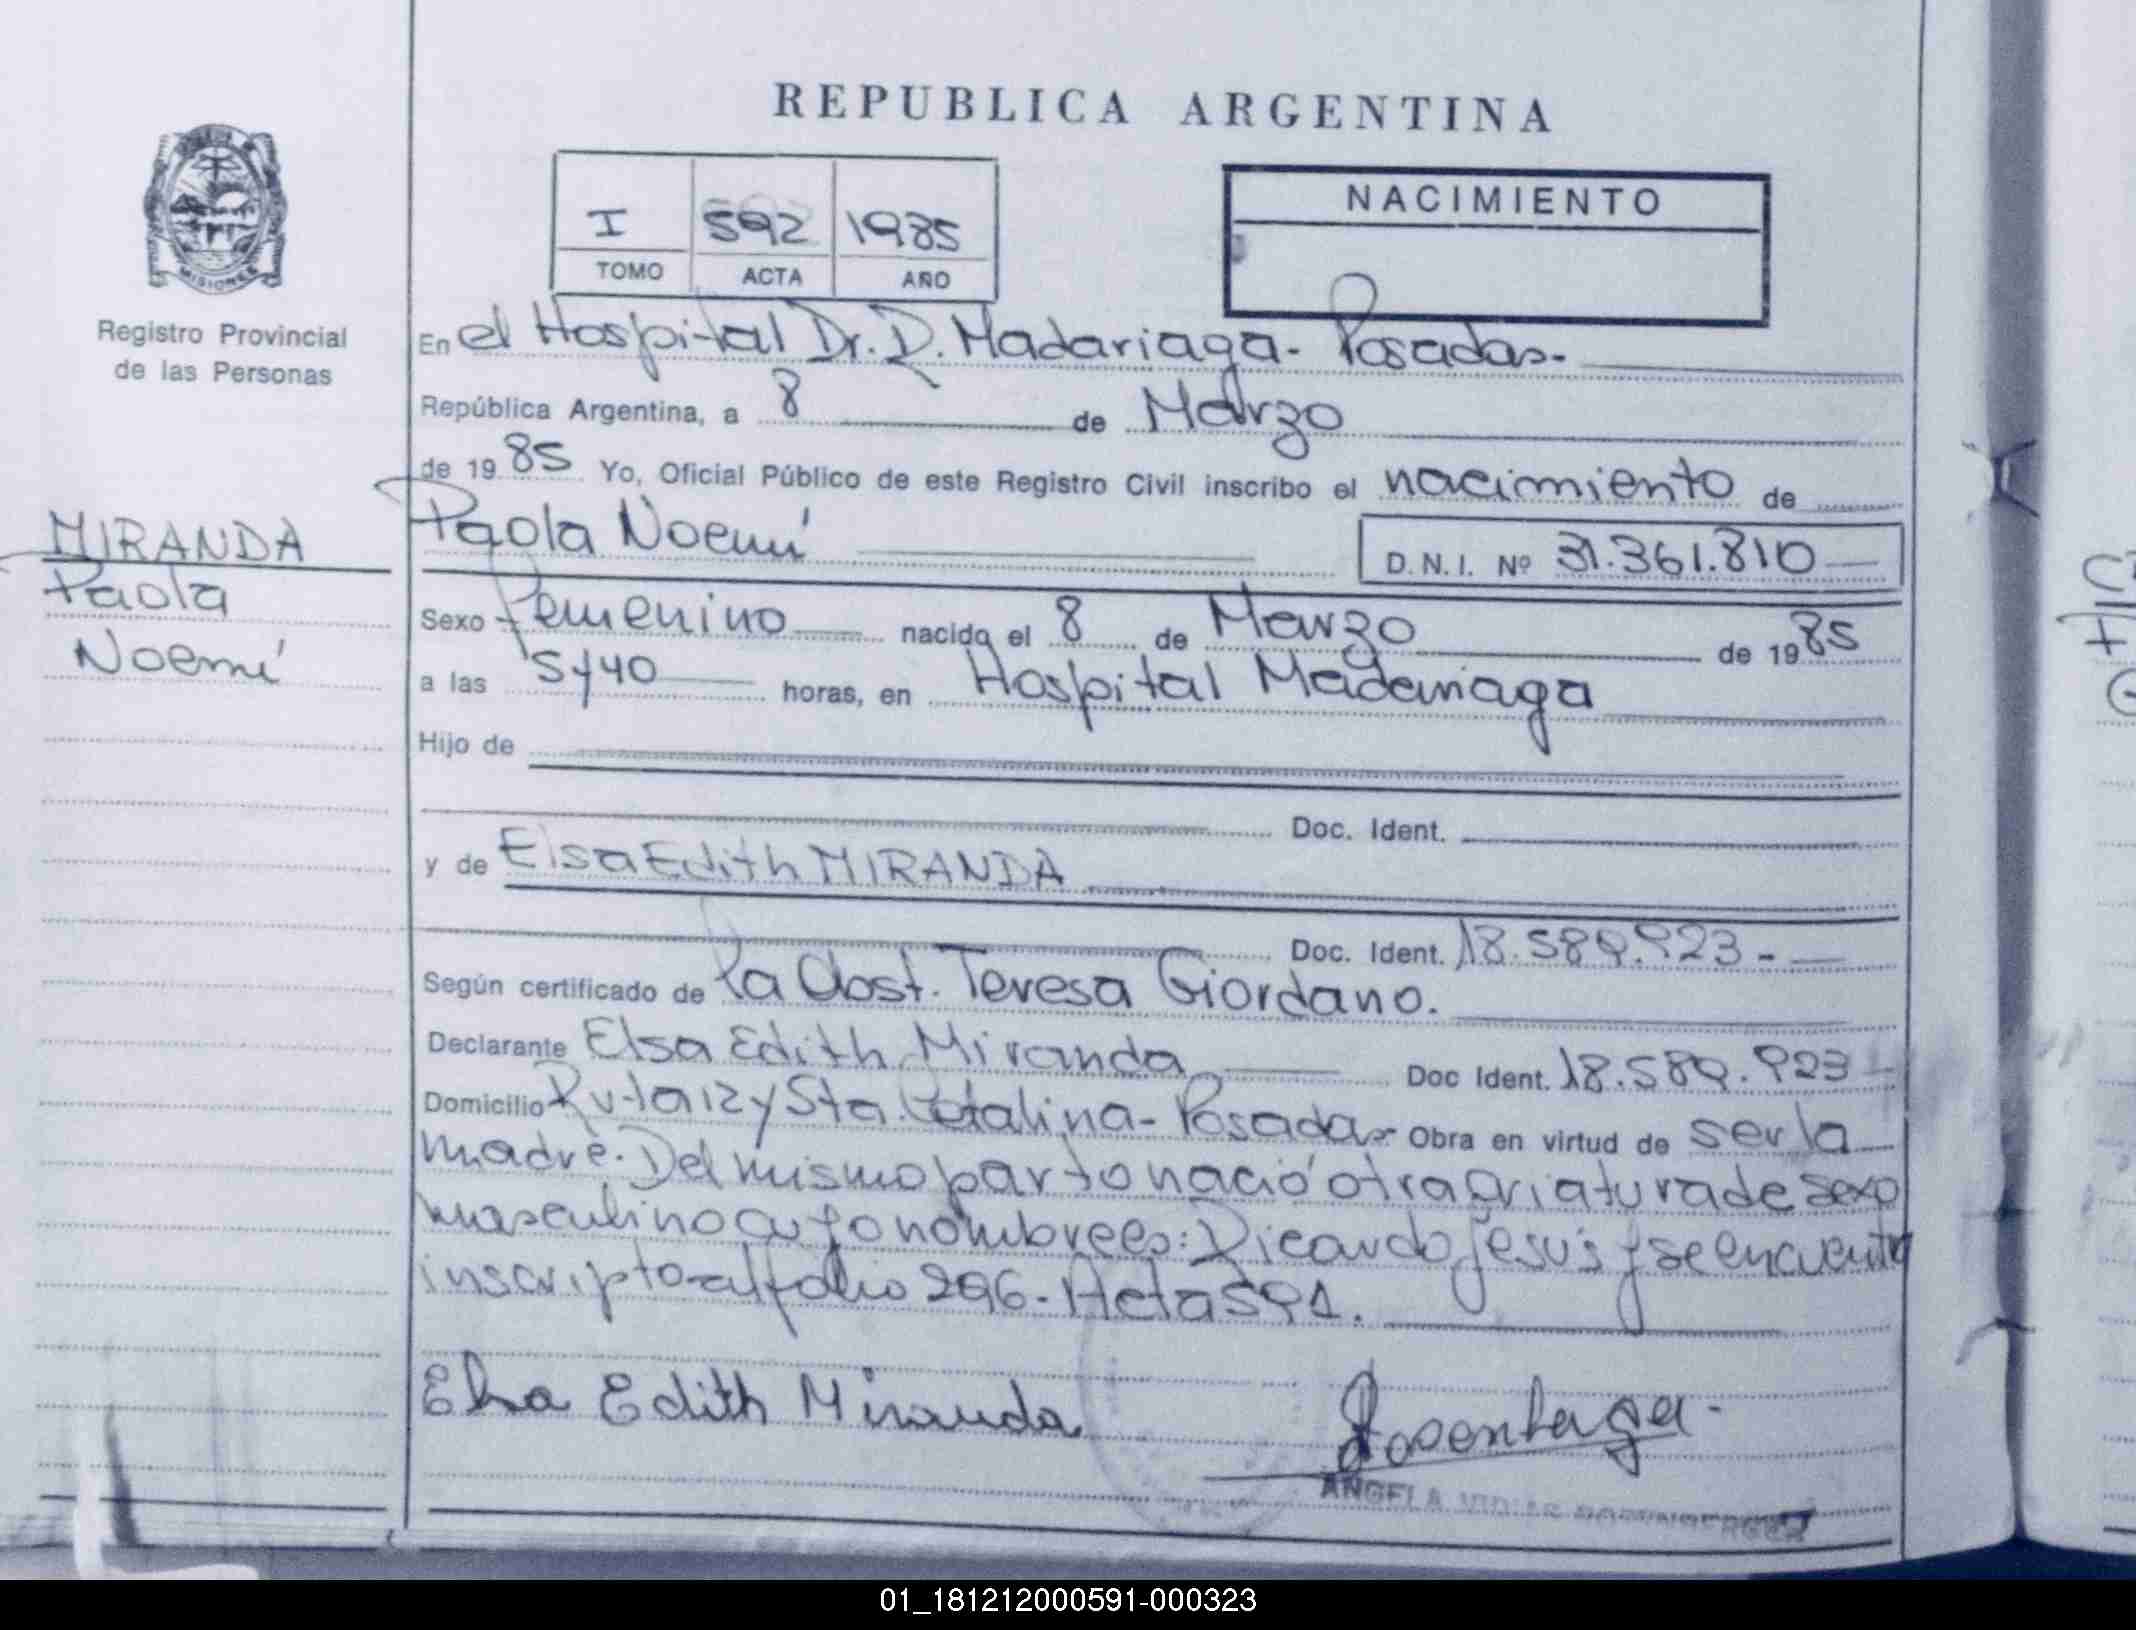 REPUBLICA ARGENTINA
MISIONES
Registro Provincial
de las Personas
I 592 1985
TOMO ACTA AÑO
NACIMIENTO
En el Hospital Dr. R. Madariaga - Posadas -
República Argentina, a 8 de Marzo
de 1985 Yo, Oficial Público de este Registro Civil inscribo el nacimiento de
MIRANDA
Paola
Noemí
Paola Noemí
D.N.I. Nº 31.361.810
Sexo femenino nacido el 8 de Marzo de 1985
a las 5y40 horas, en Hospital Madariaga
Hijo de
Doc. Ident.
y de Elsa Edith MIRANDA
Doc. Ident. 18.589.923 -
Según certificado de la Obst. Teresa Giordano.
Declarante Elsa Edith Miranda Doc Ident. 18.589.923
Domicilio Ruta 12 y Sta. Catalina - Posadas - Obra en virtud de ser la
madre. Del mismo parto nació otra criatura de sexo
masculino cuyo nombre es: Ricardo Jesús y se encuentra
inscripto al folio 296 - Acta 591.
Elsa Edith Miranda
ANGELA
01_181212000591-000323